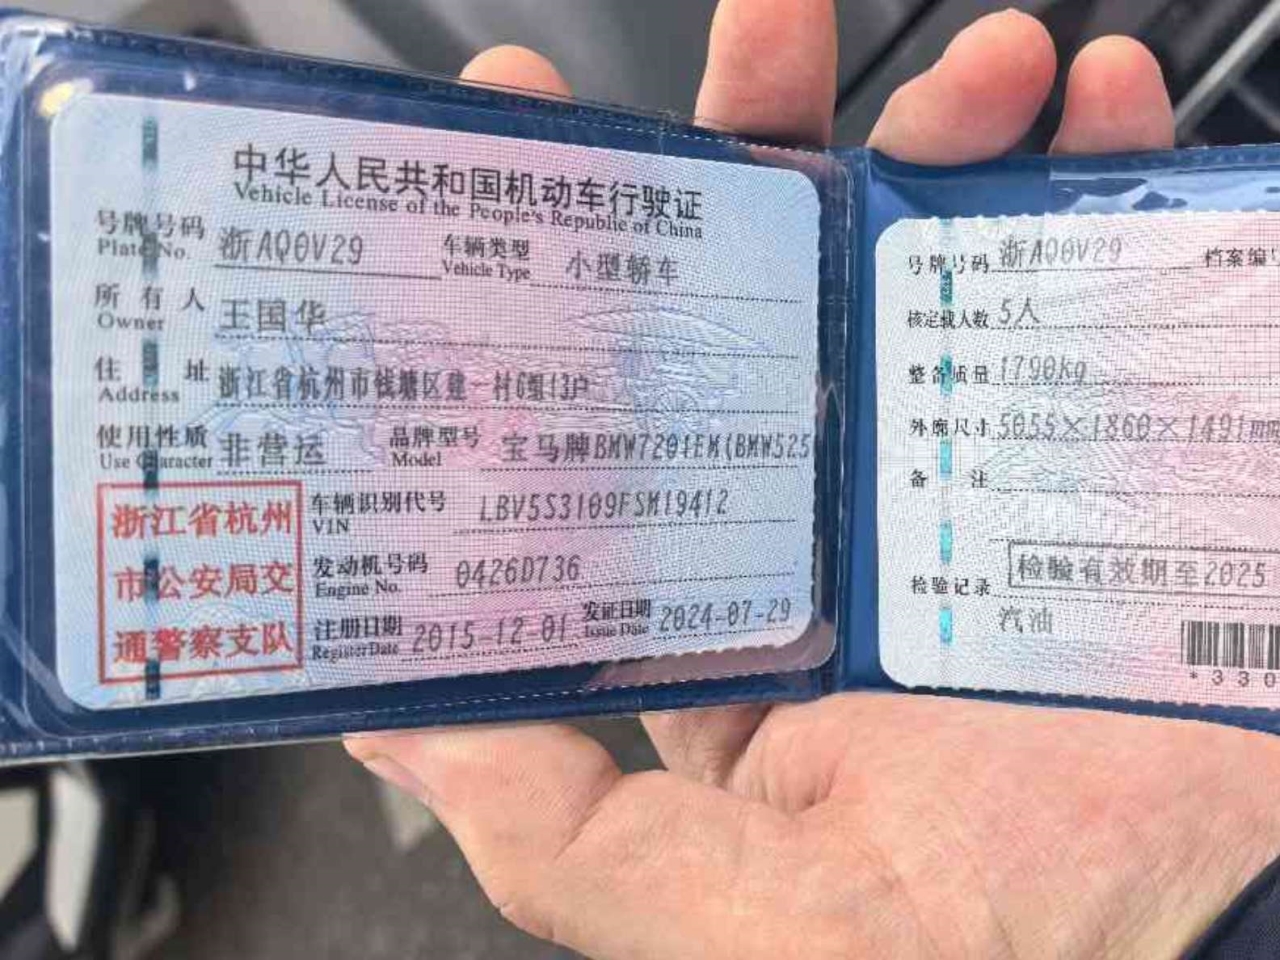 中华人民共和国机动车行驶证
Vehicle License of the People's Republic of China
号牌号码 浙AQ0V29 车辆类型 小型轿车
Plate No. Vehicle Type
所有人 王国华
Owner
住址 浙江省杭州市钱塘区建一村6组13户
Address
使用性质 非营运 品牌型号 宝马牌BMW7201EM(BMW525
Use Character Model
浙江省杭州
市公安局交
通警察支队
车辆识别代号 LBV5S3109FSM19412
VIN
发动机号码 0426D736
Engine No.
注册日期 2015-12-01 发证日期 2024-07-29
Register Date Issue Date
号牌号码 浙AQ0V29 档案编号
核定载人数 5人
整备质量 1790kg
外廓尺寸 5055×1860×1491mm
备注
检验记录 检验有效期至2025
汽油
*330